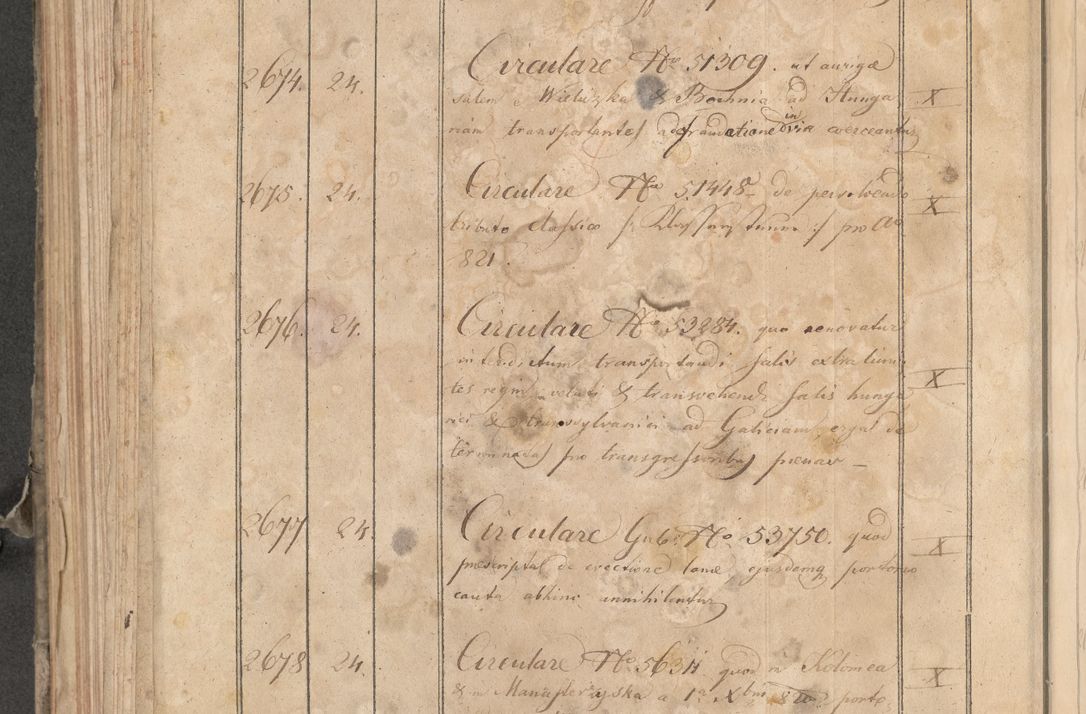 2674. 24. Circulare Nro 51309. ut aurigæ X
salem e Wieliczka & Bochnia ad Hunga
riam transportantes ad fraudatione in via coerceantur
2675. 24. Circulare Nro 51448 de persolvendo X
tributo classico /: Klassensteuer :/ pro Ao
821.
2676. 24. Circulare Nro 53284. quo renovatur
interdictum transportandi salis extra limi
tes regni & transvehendi salis hunga X
rici & transsylvanici ad Galiciam, erga de
terminatas pro transgressoribus pænas –
2677 24. Circulare Gub: Nro 53750. quod X
præscripta de evectione lanæ, ejusdemq portorio
cauta abhinc annihilentur
2678 24. Circulare Nro quod in Kolomea X
& in Manasterzyska a 1a Xbris porto